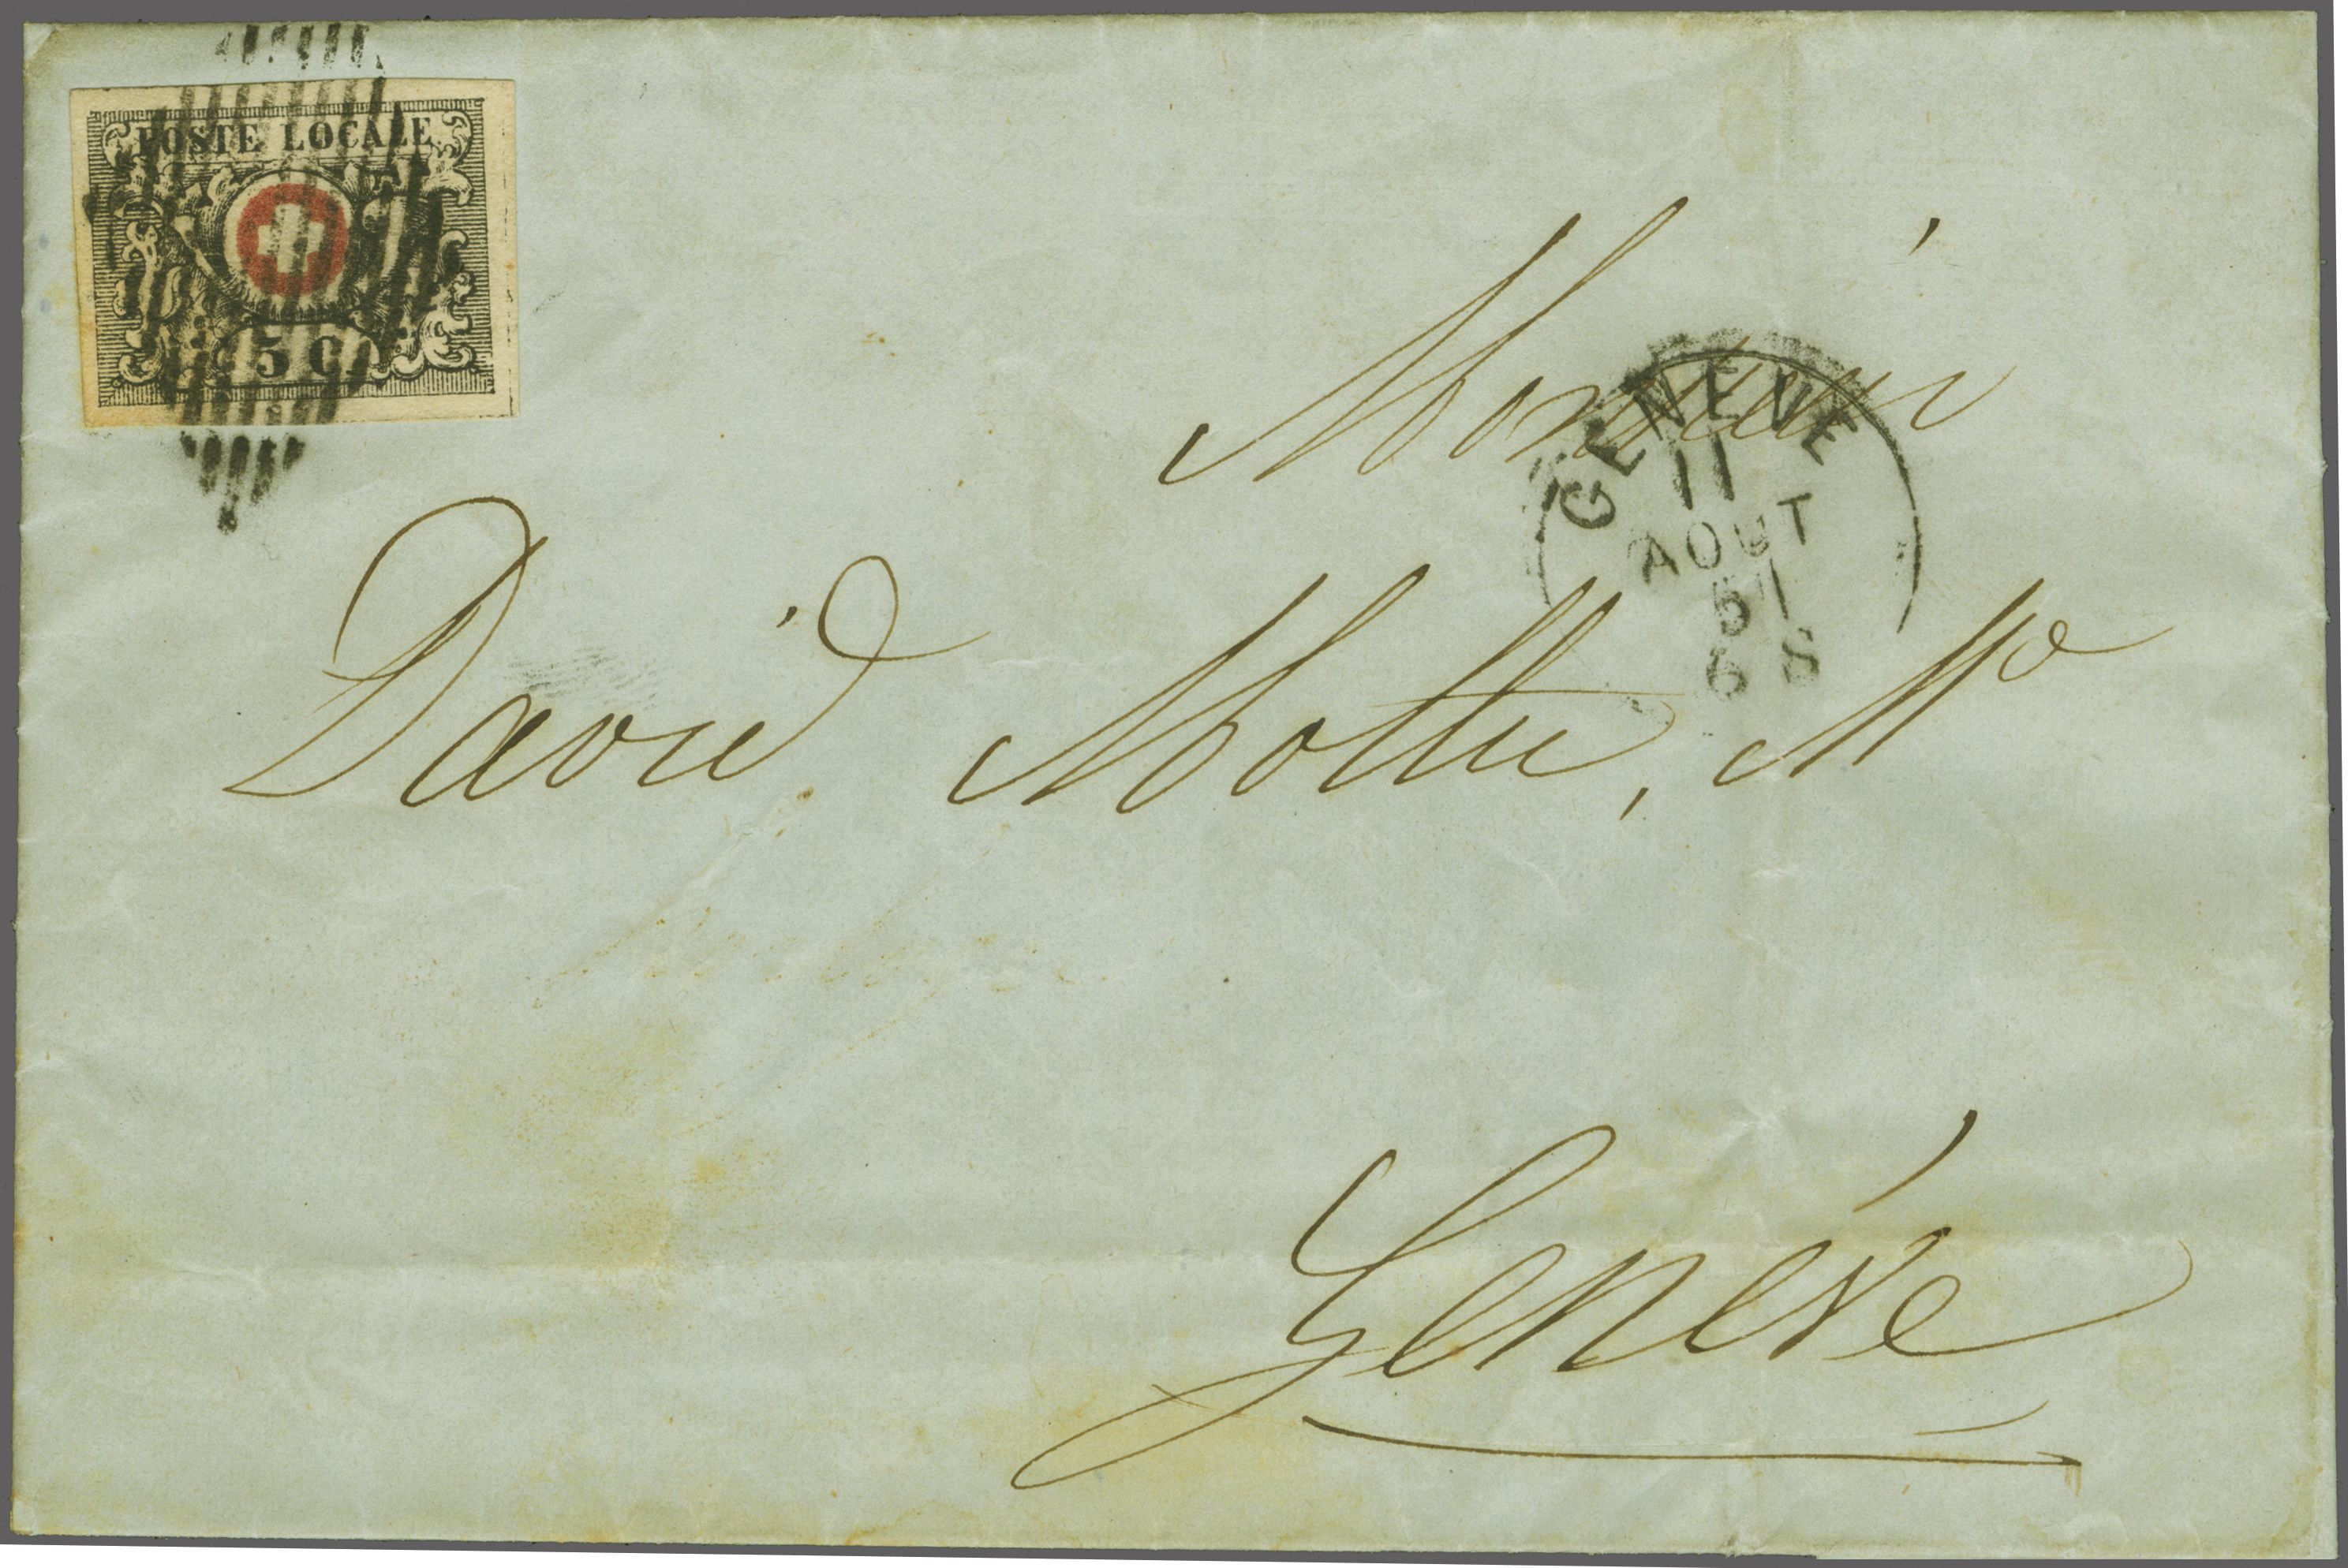 POSTE LOCALE
5 C
Monsieur
GENEVE
11
AOUT
51
6 S
David Mottu, Md
Genève